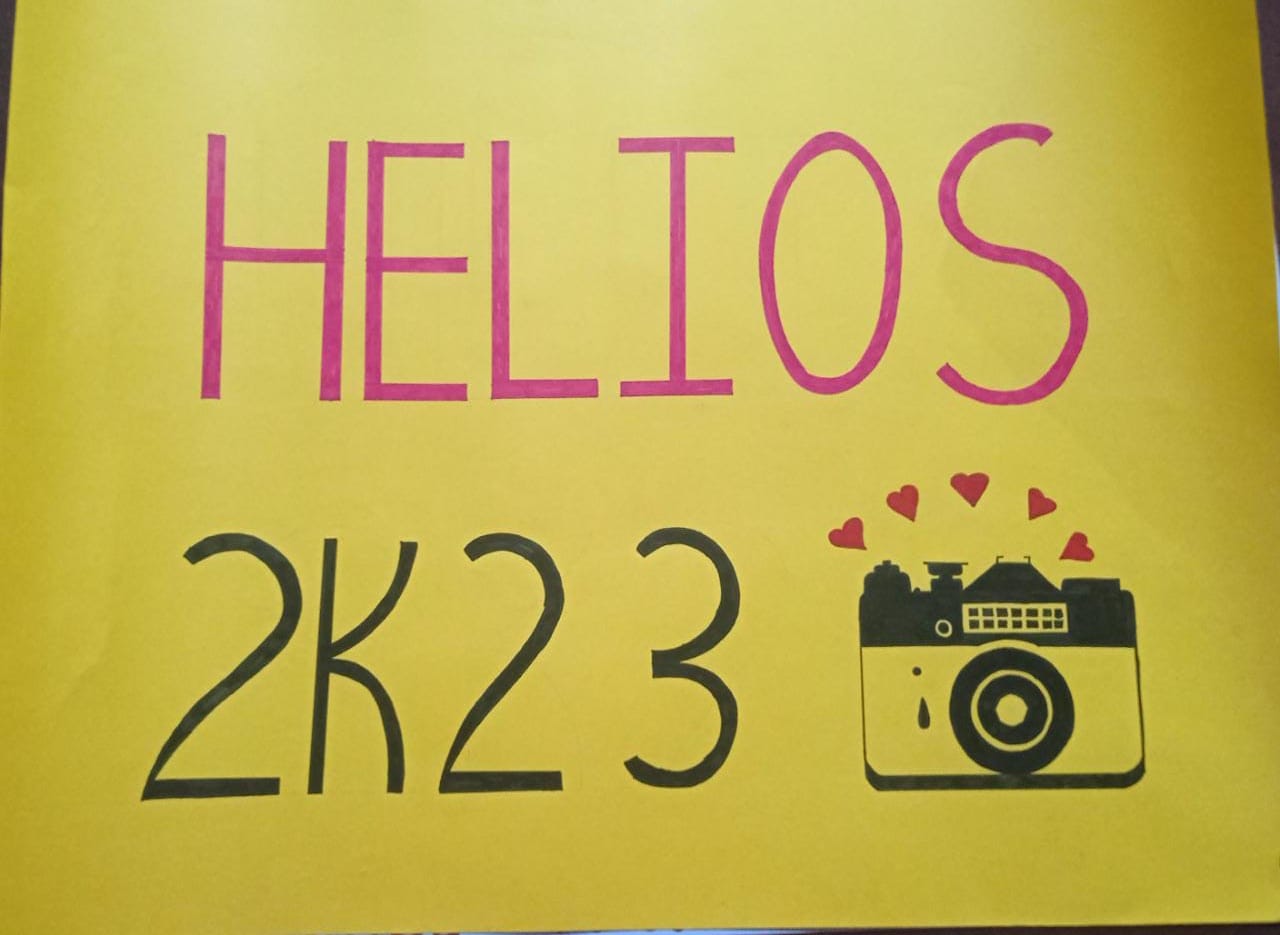 HELIOS
2K23